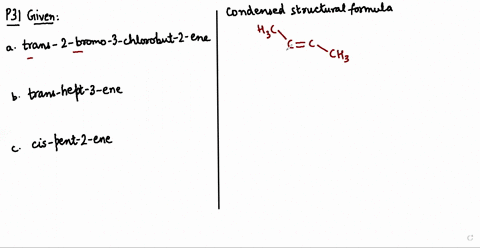 P3| Given:
a. trans-2-bromo-3-chlorobut-2-ene
b. trans-hept-3-ene
c. cis-pent-2-ene
Condensed structural formula
H₃C
C=C
CH₃